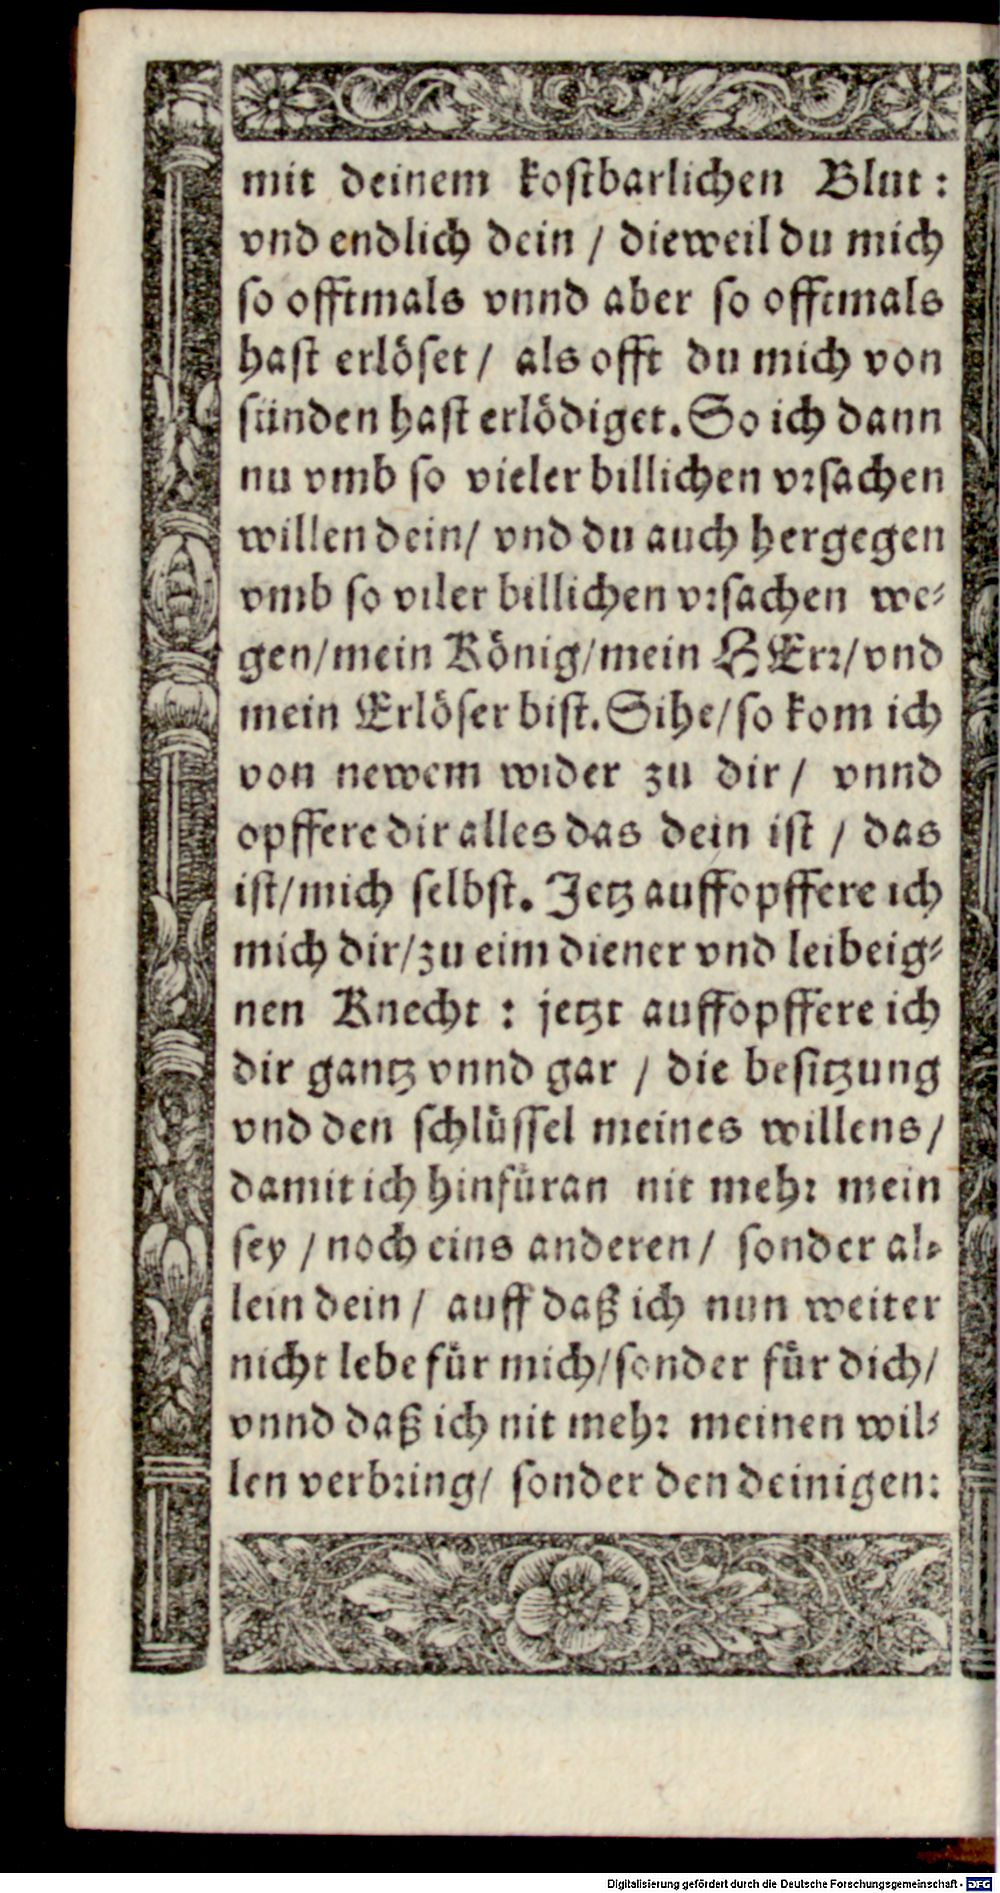 mit deinem kostbarlichen Blut:
vnd endlich dein / dieweil du mich
so offtmals vnnd aber so offtmals
hast erlöset / als offt du mich von
sünden hast erlödiget. So ich dann
nu vmb so vieler billichen vrsachen
willen dein / vnd du auch hergegen
vmb so viler billichen vrsachen we⸗
gen / mein König / mein HErr / vnd
mein Erlöser bist. Sihe / so kom ich
von newem wider zu dir / vnnd
opffere dir alles das dein ist / das
ist / mich selbst. Jetz auffopffere ich
mich dir / zu eim diener vnd leibeig⸗
nen Knecht : jetzt auffopffere ich
dir gantz vnnd gar / die besitzung
vnd den schlüssel meines willens /
damit ich hinfüran nit mehr mein
sey / noch eins anderen / sonder al⸗
lein dein / auff daß ich nun weiter
nicht lebe für mich / sonder für dich /
vnnd daß ich nit mehr meinen wil⸗
len verbring / sonder den deinigen:
Digitalisierung gefördert durch die Deutsche Forschungsgemeinschaft - DFG